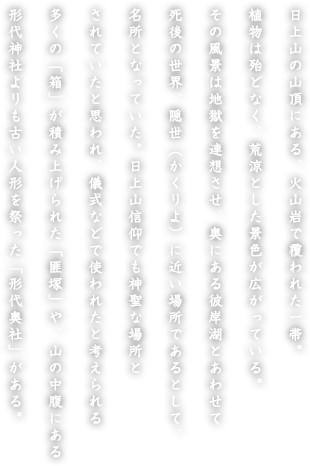 日上山の山頂にある、火山岩で覆われた一帯。
植物は殆どなく、荒涼とした景色が広がっている。
その風景は地獄を連想させ、奥にある彼岸湖とあわせて
死後の世界、隠世（かくりよ）に近い場所であるとして、
名所となっていた。日上山信仰でも神聖な場所と
されていたと思われ、儀式などで使われたと考えられる
多くの「箱」が積み上げられた「匣塚」や、山の中腹にある
形代神社よりも古い人形を祭った「形代奥社」がある。